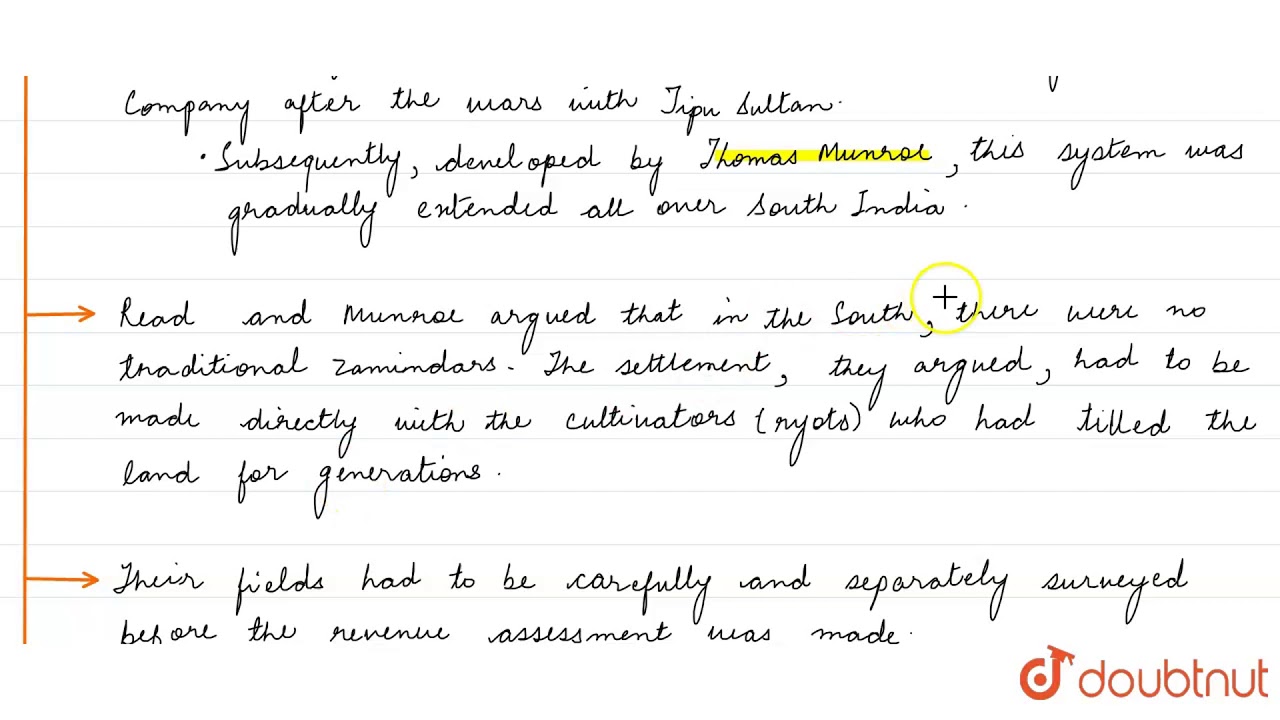 Company after the wars with Tipu Sultan.
• Subsequently, developed by Thomas Munroe, this system was
gradually extended all over South India.
→ Read and Munroe argued that in the South, there were no
traditional zamindars. The settlement, they argued, had to be
made directly with the cultivators (ryots) who had tilled the
land for generations.
→ Their fields had to be carefully and separately surveyed
before the revenue assessment was made.
doubtnut